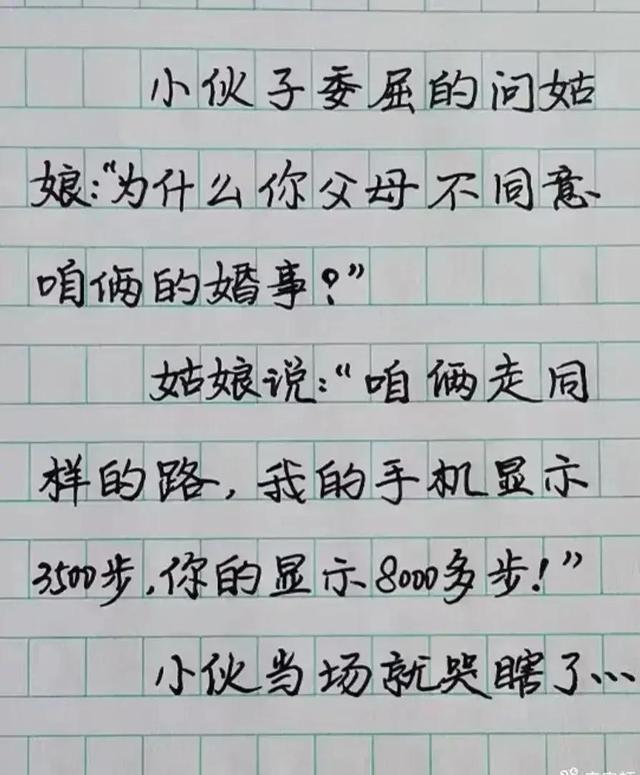 小伙子委屈的问姑
娘:“为什么你父母不同意
咱俩的婚事?”
姑娘说:“咱俩走同
样的路,我的手机显示
3500步,你的显示8000多步!”
小伙当场就哭瞎了...